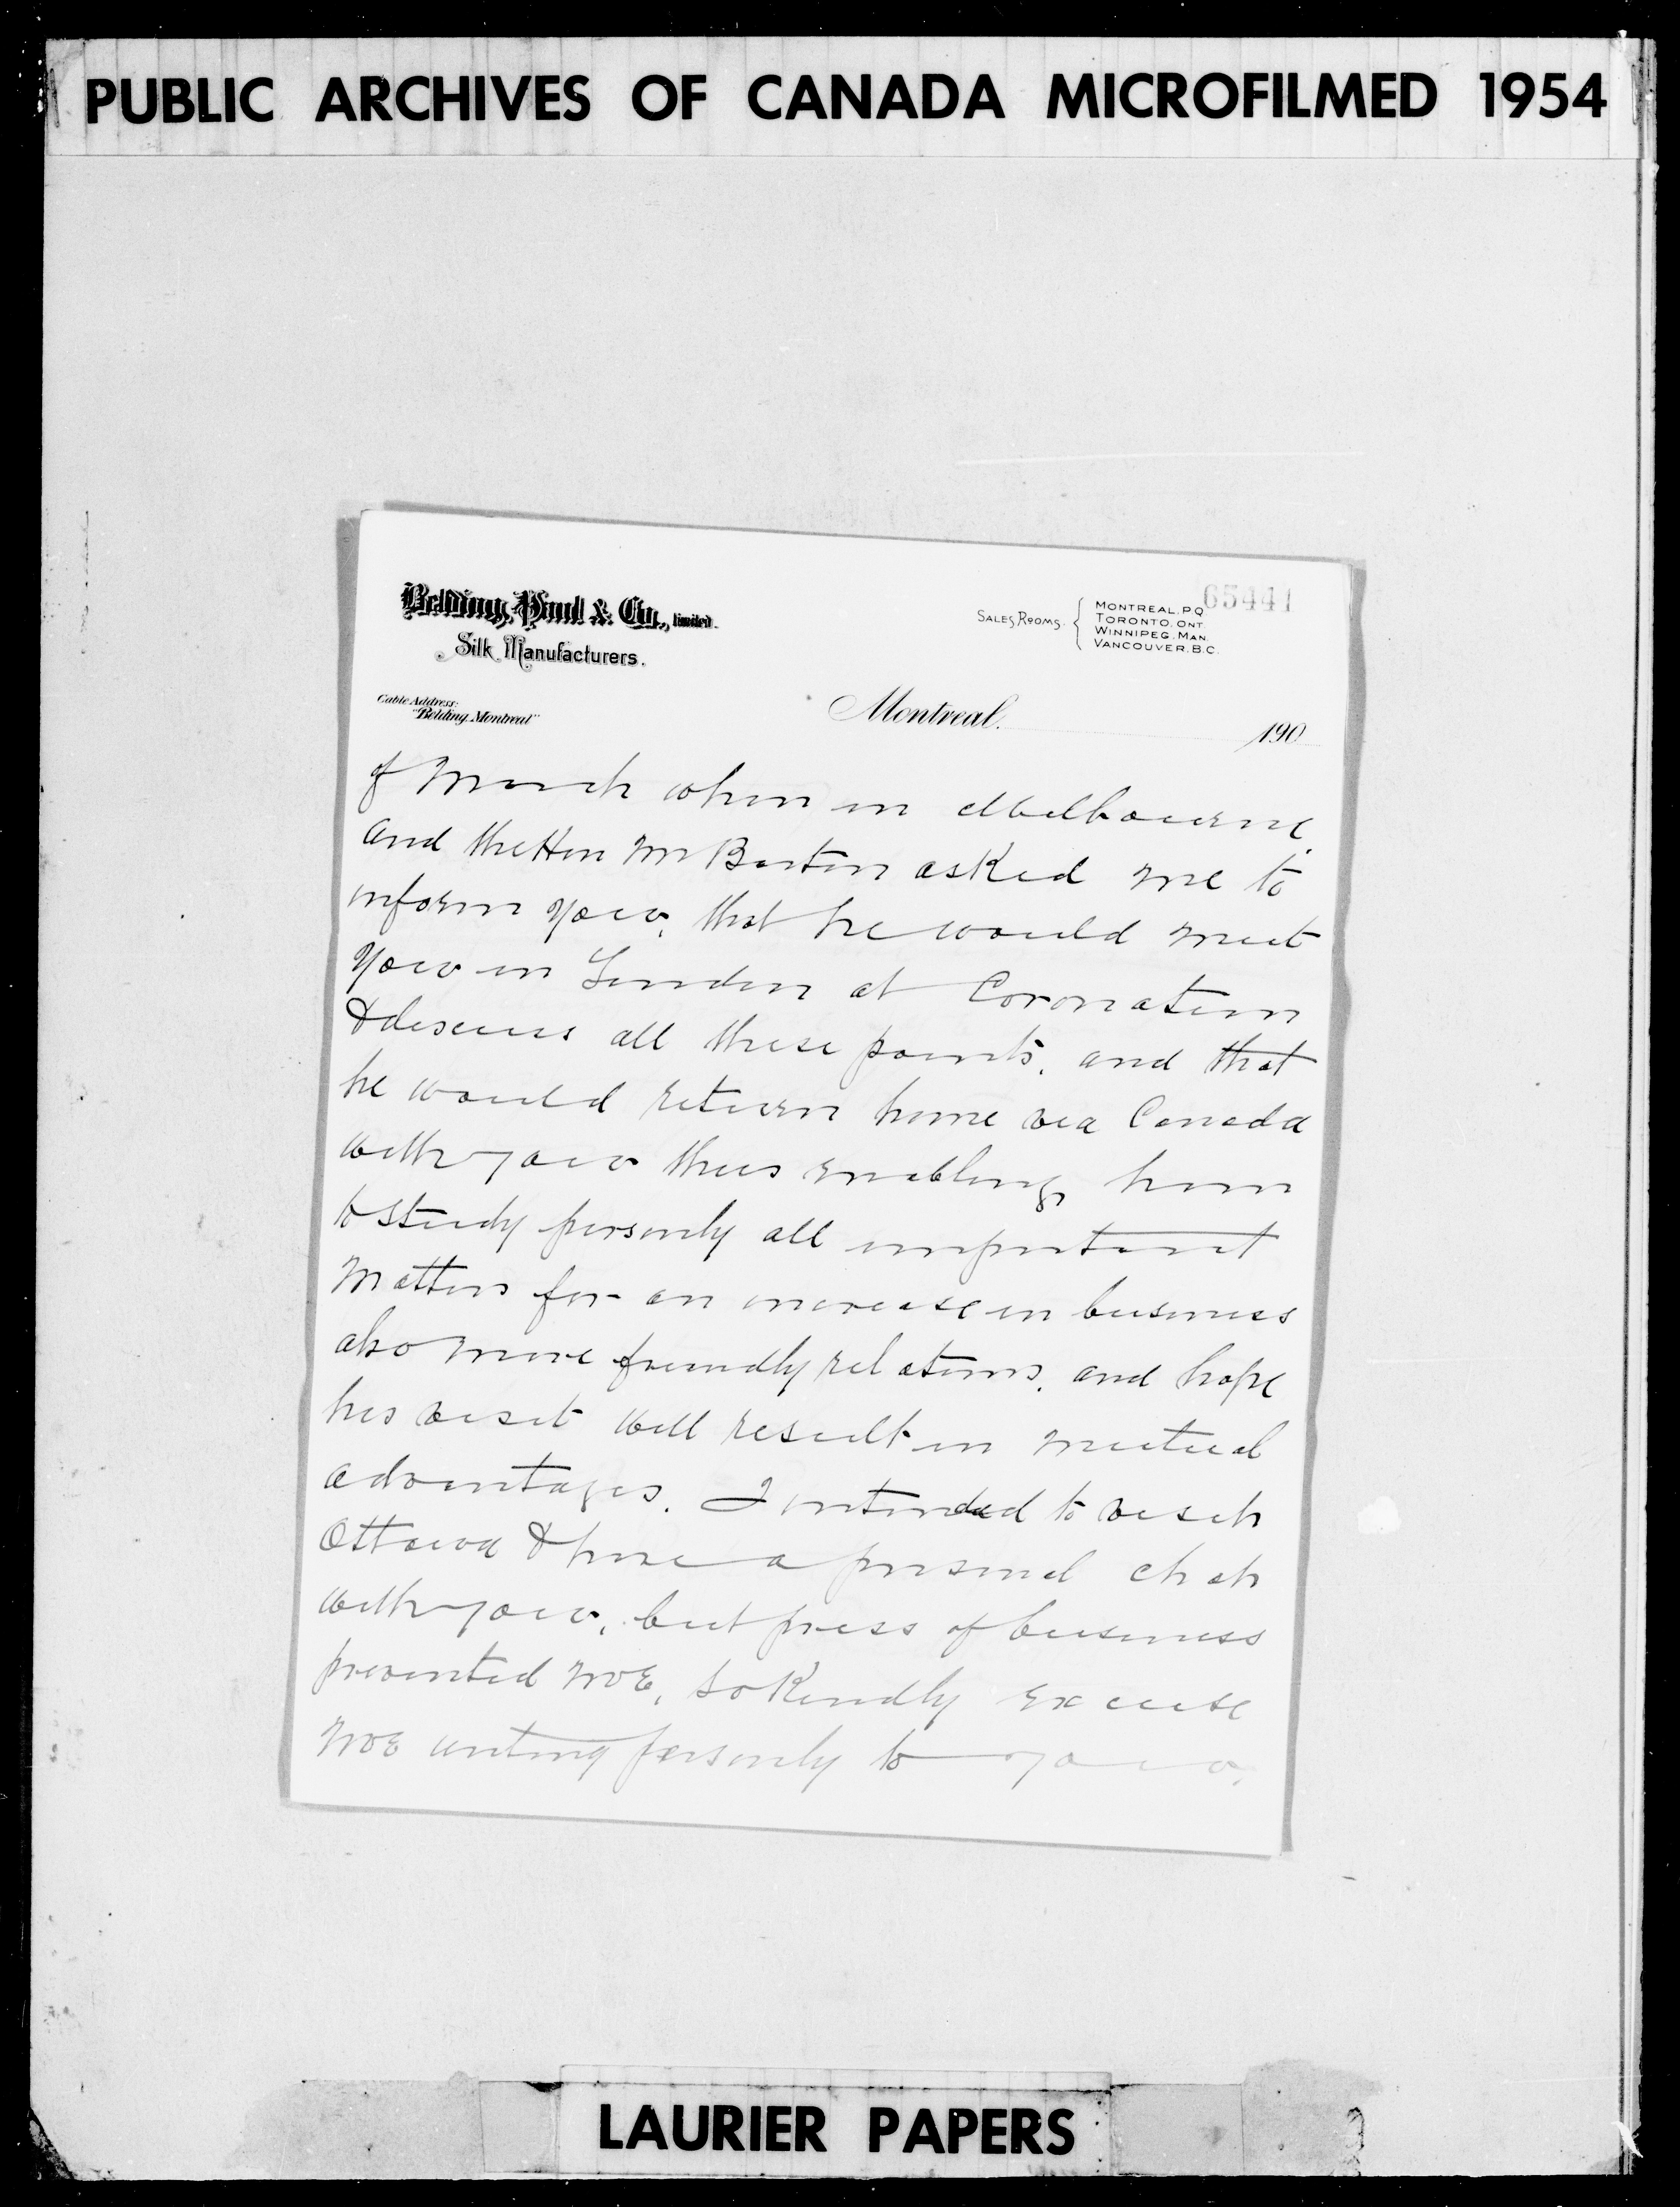 PUBLIC ARCHIVES OF CANADA MICROFILMED 1954
65441
Belding, Paul & Co., limited.
Silk Manufacturers.
SALES ROOMS.
MONTREAL, P.Q.
TORONTO, ONT.
WINNIPEG, MAN.
VANCOUVER, B.C.
Cable Address:
"Belding, Montreal"
Montreal. 190
of March when in Melbourne,
and the Hon Mr Barton asked me to
inform you, that he would meet
you in London at Coronation
& discuss all these points, and that
he would return home via Canada
with you thus enabling him
to study personly all important
matters for an increase in business
also more friendly relations, and hope
his visit will result in mutual
advantages. I intended to visit
Ottawa & have a personal chat
with you, but press of business
prevented me, so kindly excuse
me writing personly to you,
LAURIER PAPERS